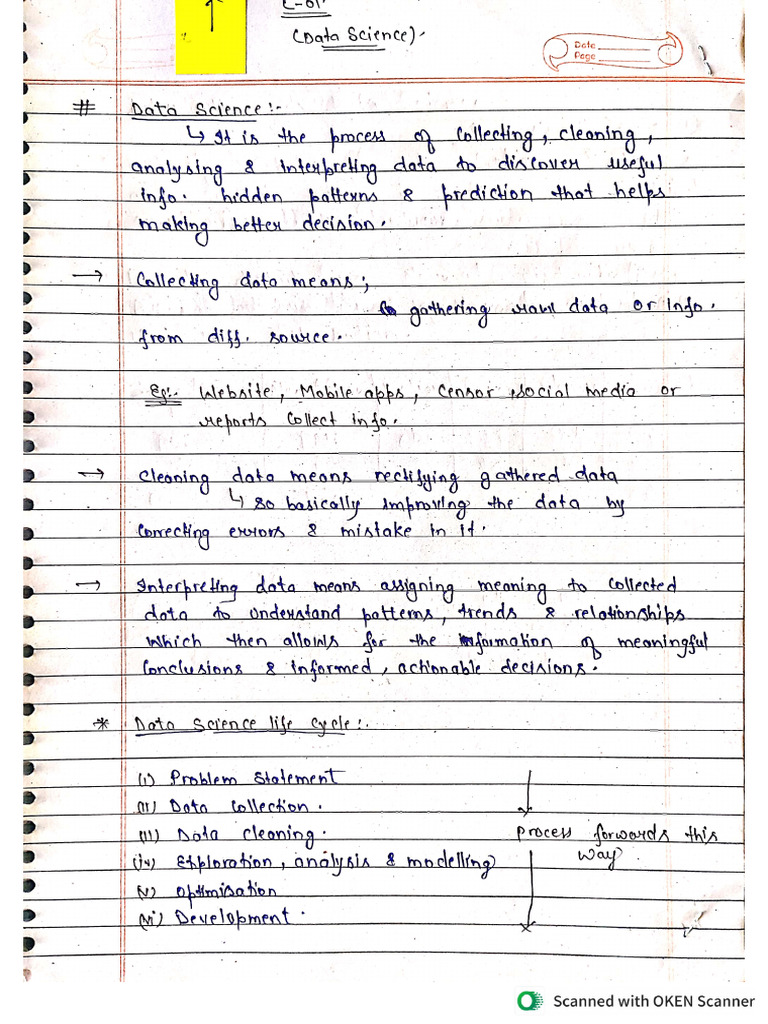 L-01
(Data Science)
Date
Page
# Data Science:-
↳ It is the process of collecting, cleaning,
analysing & interpreting data to discover useful
info. hidden patterns & prediction that helps
making better decision.
→ Collecting data means;
↳ gathering raw data or info.
from diff. source.
Eg:- Website, Mobile apps, Censor social media or
reports collect info.
→ Cleaning data means rectifying gathered data
↳ so basically improving the data by
correcting errors & mistake in it.
→ Interpreting data means assigning meaning to collected
data to understand patterns, trends & relationships
which then allows for the information of meaningful
conclusions & informed, actionable decisions.
* Data Science life cycle:-
(i) Problem Statement
(ii) Data Collection.
(iii) Data cleaning. process forwards this
(iv) Exploration, analysis & modelling way.
(v) Optimisation
(vi) Development.
Scanned with OKEN Scanner